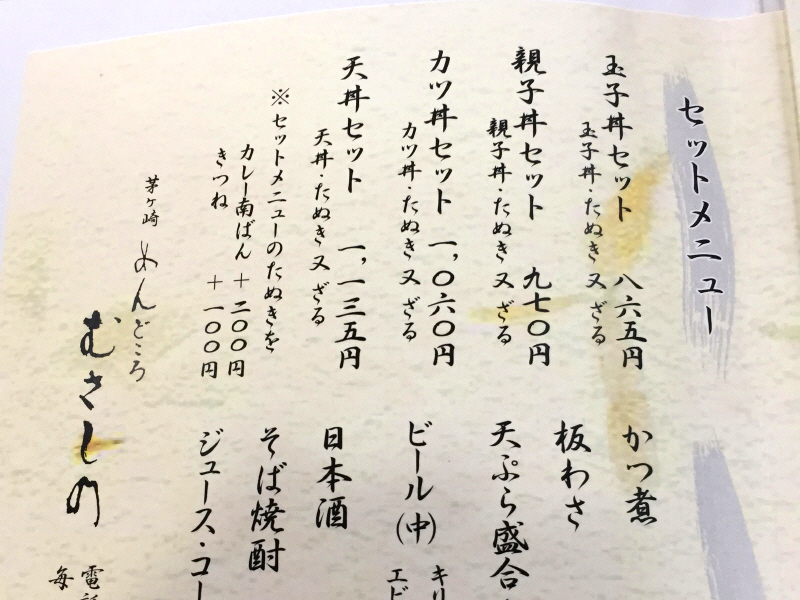 セットメニュー
玉子丼セット 八六五円
玉子丼・たぬき又ざる
親子丼セット 九七〇円
親子丼・たぬき又ざる
カツ丼セット 一、〇六〇円
カツ丼・たぬき又ざる
天丼セット 一、一三五円
天丼・たぬき又ざる
※セットメニューのたぬきを
カレー南ばん +二〇〇円
きつね +一〇〇円
かつ煮
板わさ
天ぷら盛合
ビール(中)
キリ
エビ
日本酒
そば焼酎
ジュース・コー
茅ケ崎 めんどころ
むさしの
電話
毎